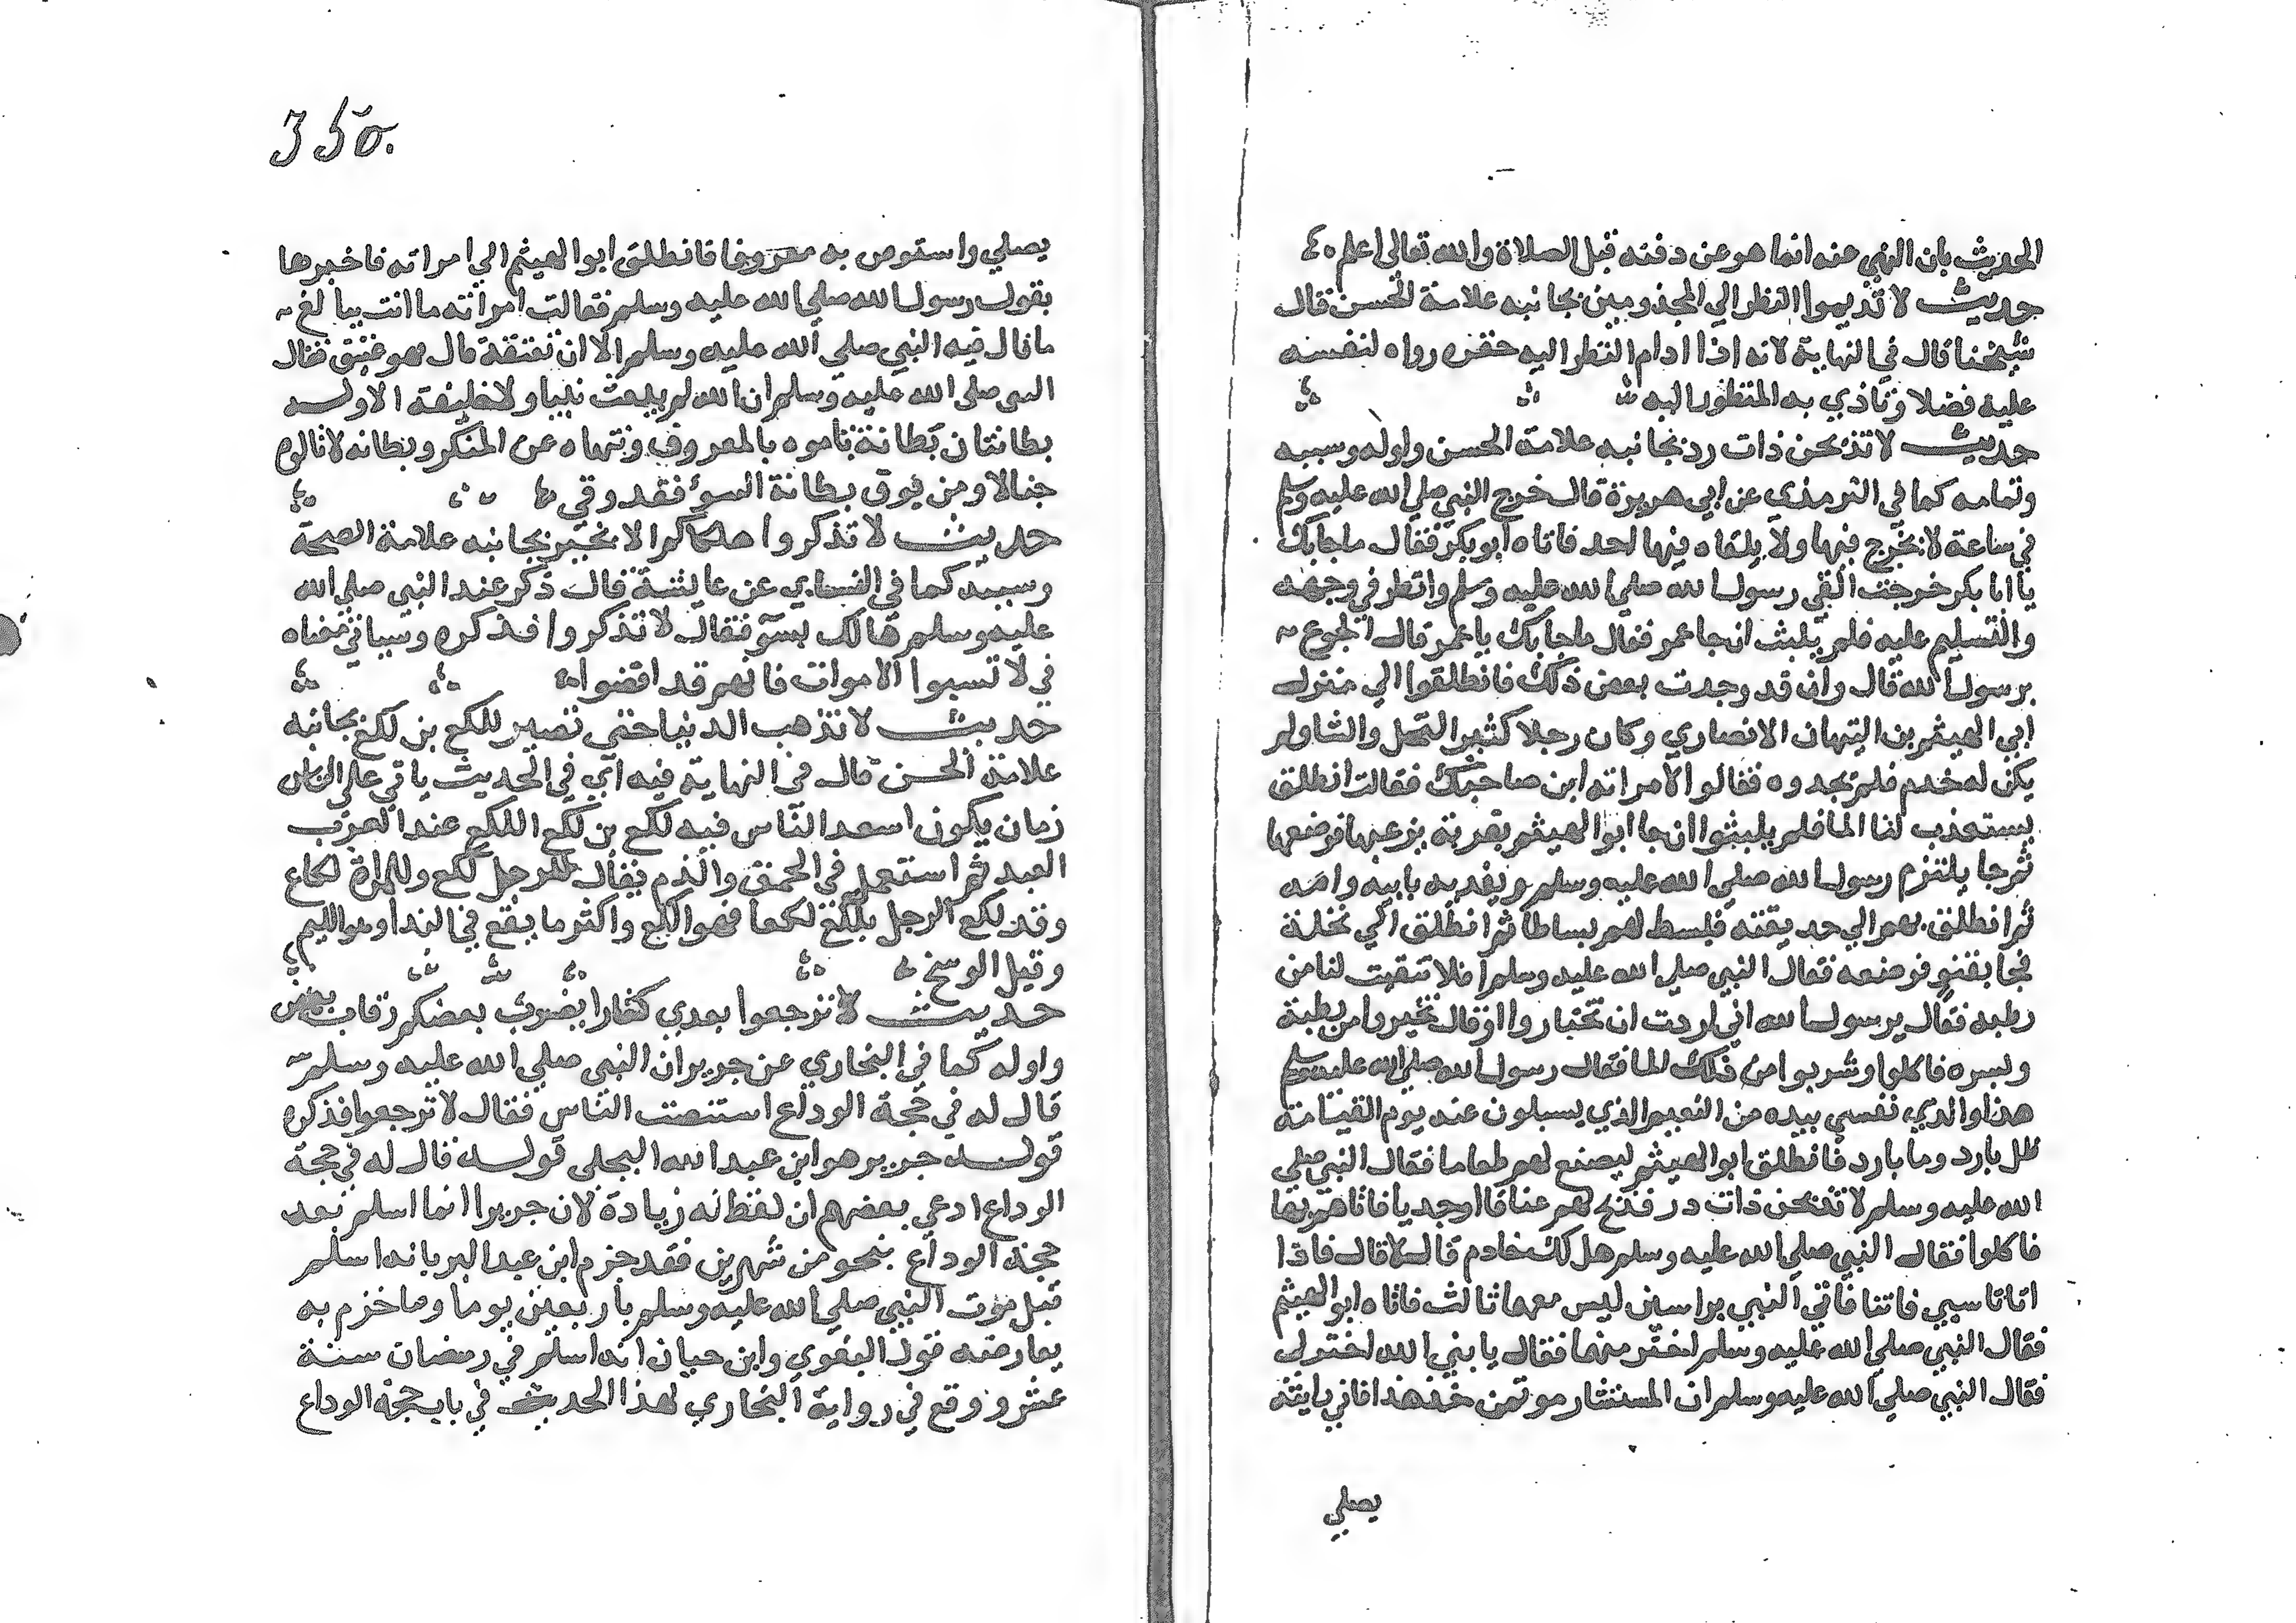 الحديث بان النهي عنه انما هو عن دفنه قبل الصلاة والله تعالى اعلم
حديث لا تديموا النظر الي المجذومين بجانبه علامة الحسن قال
شيخنا قال في النهاية لانه اذا ادام النظر اليه حقره رواه لنفسه
عليه فضلا وتاذي به المنظور اليه
حديث لا تذبحن ذات در بجانبه علامة الحسن واوله وسببه
وتمامه كما في الترمذي عن ابي هريرة قال خرج النبي صلي الله عليه وسلم
في ساعة لا يخرج فيها ولا يلقاه فيها احد فاتاه ابو بكر فقال ما جابك
يا ابا بكر خرجت القي رسول الله صلي الله عليه وسلم وانظر في وجهه
والتسليم عليه فلم يلبث ان جا عمر فقال ما جابك يا عمر قال الجوع
يرسول الله قال وان قد وجدت بعض ذلك فانطلقوا الي منزل
ابي الهيثم بن التيهان الانصاري وكان رجلا كثير النخل والشا ولم
يكن له خدم فلم يجدوه فقالوا لامراته اين صاحبك فقالت انطلق
يستعذب لنا الما فلم يلبثوا ان جا ابو الهيثم بقربة يزعبها فوضعها
ثم جا يلتزم رسول الله صلي الله عليه وسلم ويفديه بابيه وامه
ثم انطلق بهم الي حديقته فبسط لهم بساطا ثم انطلق الي نخلة
فجا بقنو فوضعه فقال النبي صلي الله عليه وسلم افلا تنقيت لنا من
رطبه فقال يرسول الله اني اردت ان تختاروا او قال تخيروا من رطبه
وبسره فاكلوا وشربوا من ذلك الما فقال رسول الله صلي الله عليه وسلم
هذا والذي نفسي بيده من النعيم الذي يسيلون عنه يوم القيامة
ظل بارد وما بارد فانطلق ابو الهيثم ليصنع لهم طعاما فقال النبي صلي
الله عليه وسلم لا تذبحن ذات در فذبح لهم عناقا او جديا فاتاهم بها
فاكلوا فقال النبي صلي الله عليه وسلم هل لك خادم قال لا قال فاذا
اتانا سبي فاتنا فاتي النبي براسين ليس معهما ثالث فاتاه ابو الهيثم
فقال النبي صلي الله عليه وسلم اختر منهما فقال يا نبي الله اختر لي
فقال النبي صلي الله عليه وسلم ان المستشار موتمن خذ هذا فاني رايته
يصلي
350.
يصلي واستوص به معروفا فانطلق ابو الهيثم الي امراته فاخبرها
بقول رسول الله صلي الله عليه وسلم فقالت امراته ما انت ببالغ
ما قال فيه النبي صلي الله عليه وسلم الا ان تعتقه قال هو عتيق فقال
النبي صلي الله عليه وسلم ان الله لم يبعث نبيا ولا خليفة الا وله
بطانتان بطانة تامره بالمعروف وتنهاه عن المنكر وبطانه لا تالوه
خبالا ومن يوق بطانة السوء فقد وقي
حديث لا تذكروا هلكاكم الا بخير بجانبه علامة الصحة
وسببه كما في النساي عن عايشة قالت ذكر عند النبي صلي الله
عليه وسلم هالك بسوء فقال لا تذكروا فذكره وسياتي معناه
في لا تسبوا الاموات فانهم قد افضوا
حديث لا تذهب الدنيا حتي تصير للكع بن لكع بجانبه
علامة الحسن قال في النهاية فيه اي في الحديث ياتي علي الناس
زمان يكون اسعد الناس فيه لكع بن لكع اللكع عند العرب
العبد ثم استعمل في الحمق والذم يقال للرجل لكع وللمراة لكاع
وقد لكع الرجل يلكع لكعا فهو الكع واكثر ما يقع في الندا وهو الليم
وقيل الوسخ
حديث لا ترجعوا بعدي كفارا يضرب بعضكم رقاب بعض
واوله كما في البخاري عن جرير ان النبي صلي الله عليه وسلم
قال له في حجة الوداع استنصت الناس فقال لا ترجعوا فذكره
قوله جرير هو ابن عبد الله البجلي قوله قال له في حجة
الوداع ادعي بعضهم ان لفظ له زيادة لان جريرا انما اسلم بعد
حجة الوداع بنحو من شهرين فقد جزم ابن عبد البر بانه اسلم
قبل موت النبي صلي الله عليه وسلم باربعين يوما وما جزم به
يعارضه قول البغوي وابن حبان انه اسلم في رمضان سنة
عشر ووقع في رواية البخاري لهذا الحديث في باب حجة الوداع